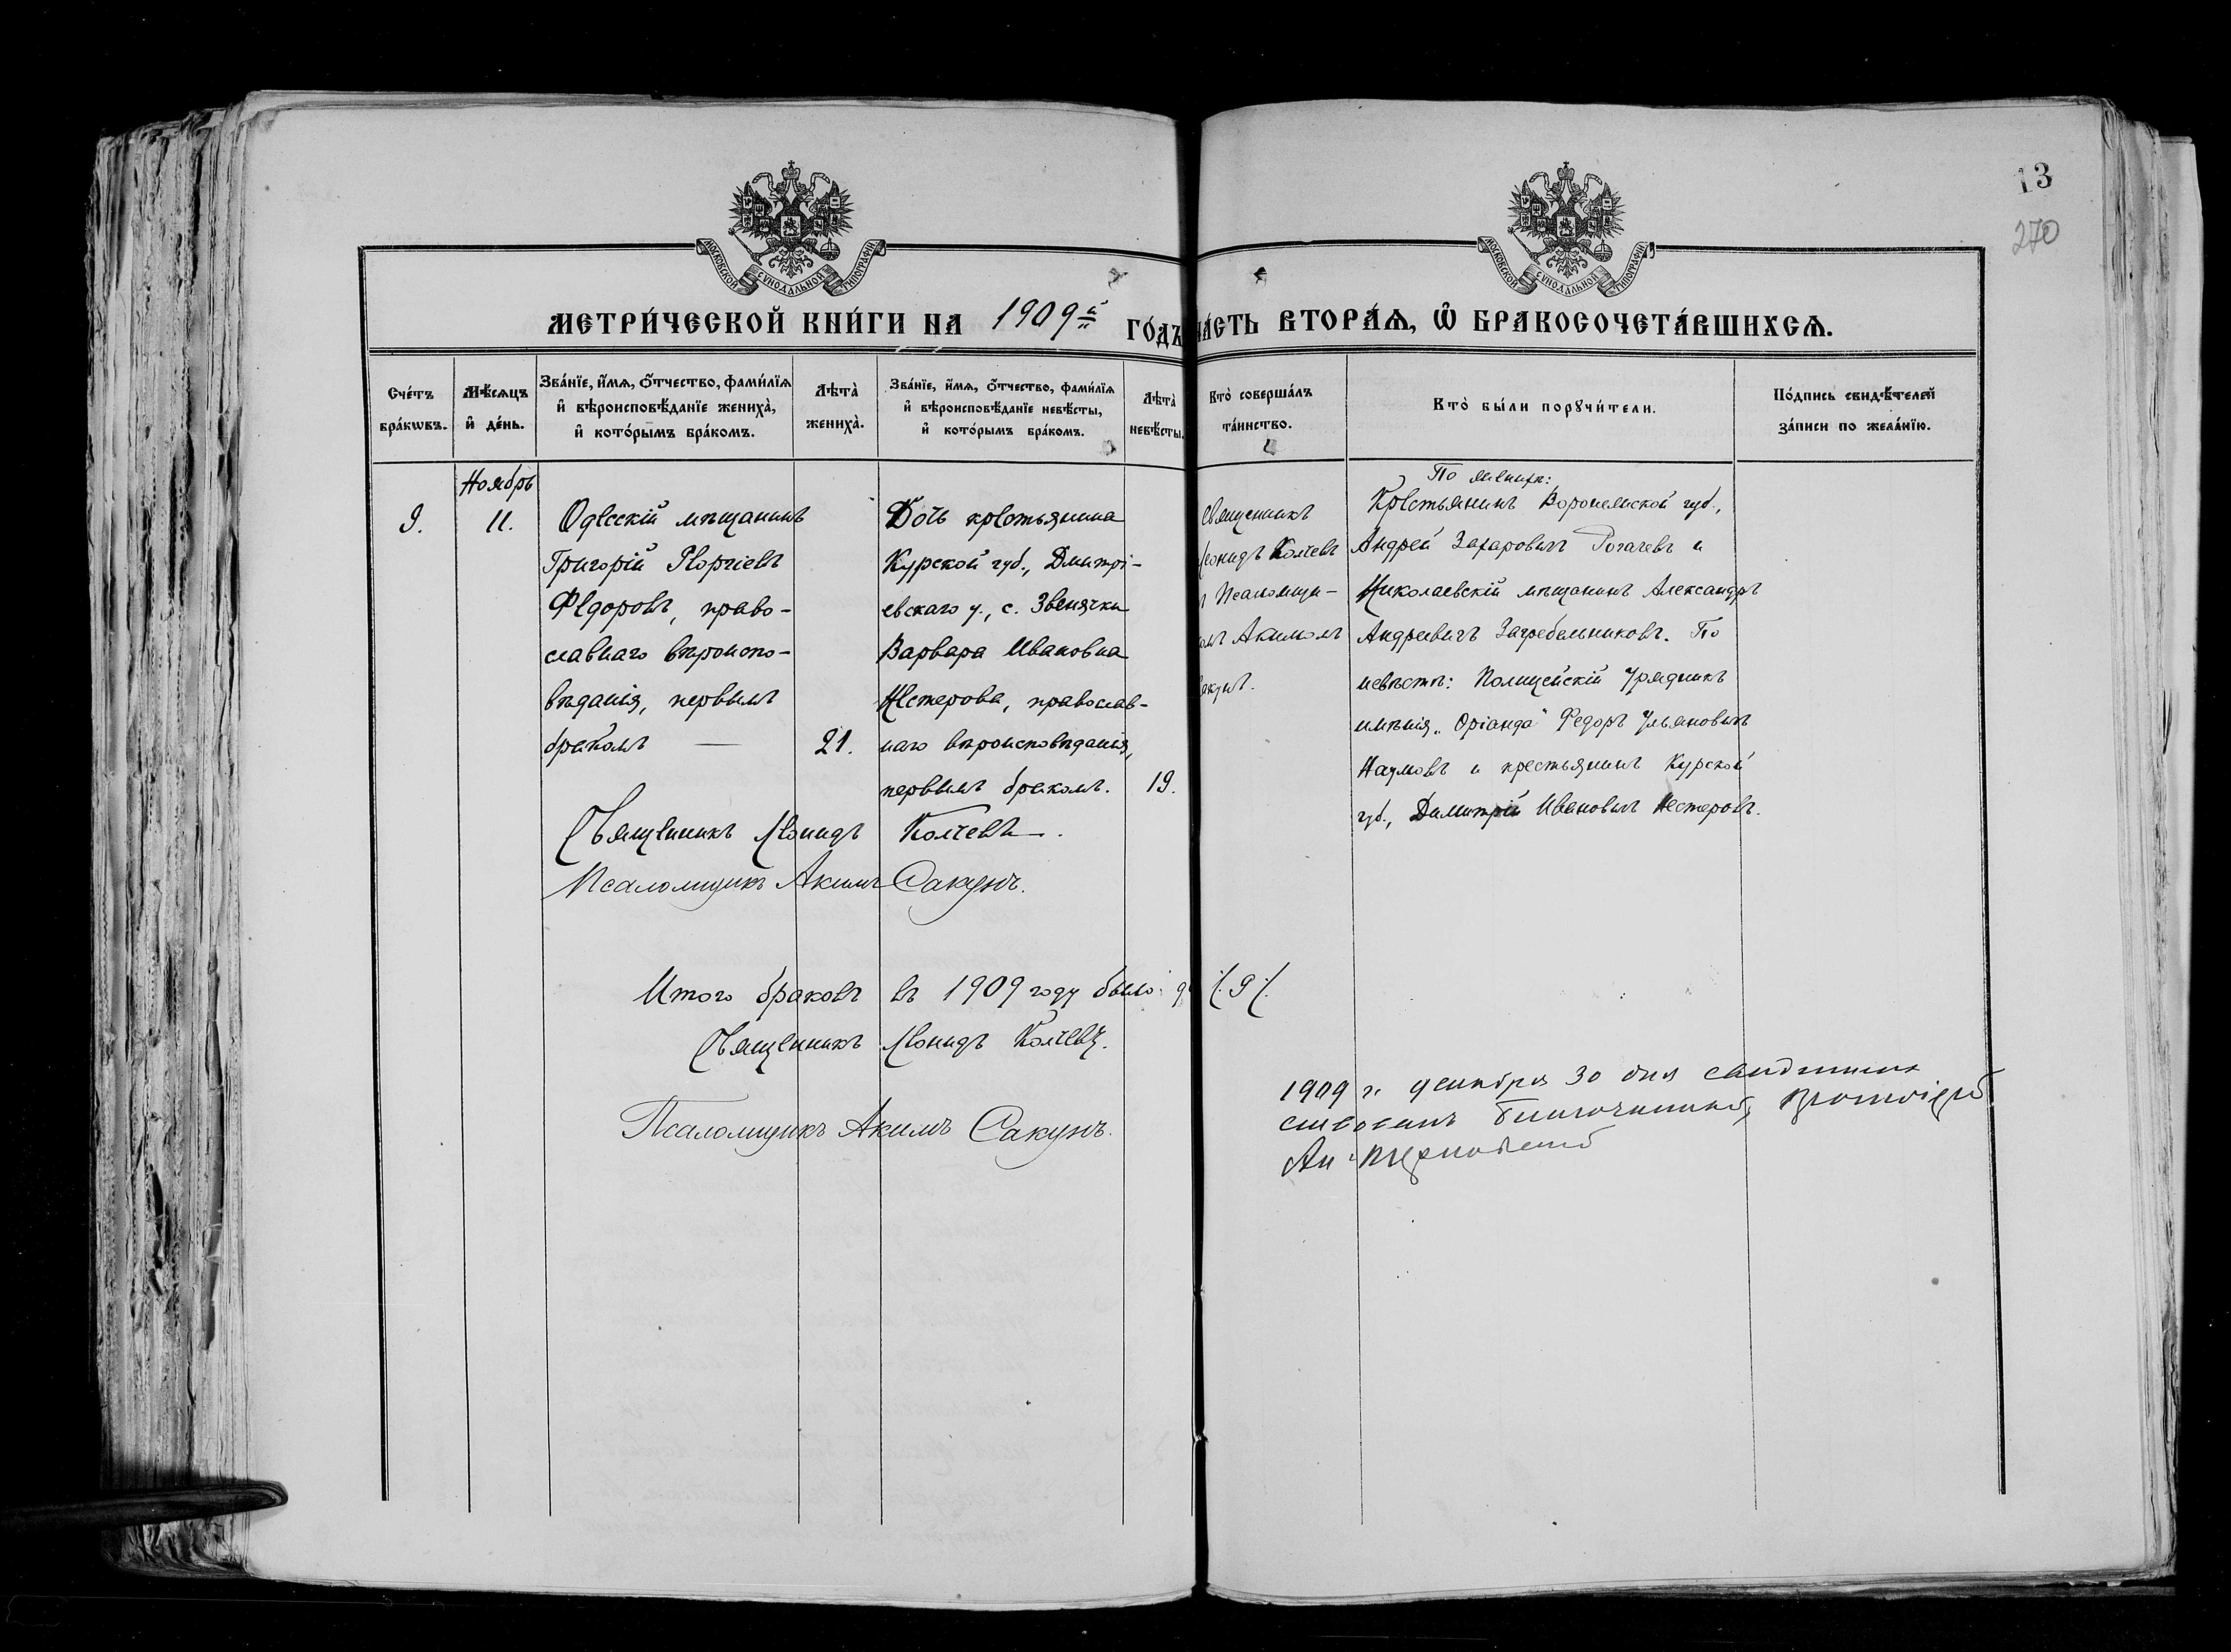 13
270
МОСКОВСКОЙ СѴНОДАЛЬНОЙ ТИПОГРАФІИ
МОСКОВСКОЙ СѴНОДАЛЬНОЙ ТИПОГРАФІИ
МЕТРИ́ЧЕСКОЙ КНИ́ГИ НА 1909й ГО́ДЪ
ЧА́СТЬ ВТОРА́Ѧ, Ѽ БРАКОСОЧЕТА́ВШИХСѦ.
Сче́тъ бра́кѡвъ.
Мѣ́сѧцъ и҆ де́нь.
Зва́нїе, и҆́мѧ, ѻ҆́тчество, фами́лїѧ и҆ вѣроисповѣ́данїе жениха̀, и҆ кото́рымъ бра́комъ.
Лѣта̀ жениха̀.
Зва́нїе, и҆́мѧ, ѻ҆́тчество, фами́лїѧ и҆ вѣроисповѣ́данїе невѣ́сты, и҆ кото́рымъ бра́комъ.
Лѣта̀ невѣ́сты.
Кто̀ соверша́лъ та́инство.
Кто̀ бы́ли порꙋчи́тели.
По́дпись свидѣ́телей за́писи по жела́нїю.
Ноябрь
9.
11.
Одесскій мѣщанинъ
Григорій Георгіевъ
Ѳедоровъ, право-
славнаго вѣроиспо-
вѣданія, первымъ
бракомъ —
21.
Дочь крестьянина
Курской губ., Дмитрі-
евскаго у., с. Звенячки
Варвара Ивановна
Нестерова, православ-
наго вѣроисповѣданія,
первымъ бракомъ.
19.
Священникъ
Леонидъ Колчевъ
Псаломщи-
омъ Акимомъ
акунъ.
По женихѣ:
Крестьянинъ Воронежской губ.,
Андрей Захаровичъ Рогачевъ и
Николаевскій мѣщанинъ Александръ
Андреевичъ Загребельниковъ. По
невѣстѣ: Полицейскій Урядникъ
имѣнія „Оріанда" Ѳедоръ Ульяновичъ
Наумовъ и крестьянинъ Курской
губ., Димитрій Ивановичъ Нестеровъ.
Священникъ Леонидъ Колчевъ.
Псаломщикъ Акимъ Сакунъ.
Итого браковъ въ 1909 году было: 9 /. 9 /.
Священникъ Леонидъ Колчевъ.
Псаломщикъ Акимъ Сакунъ.
1909 г. декабря 30 дня